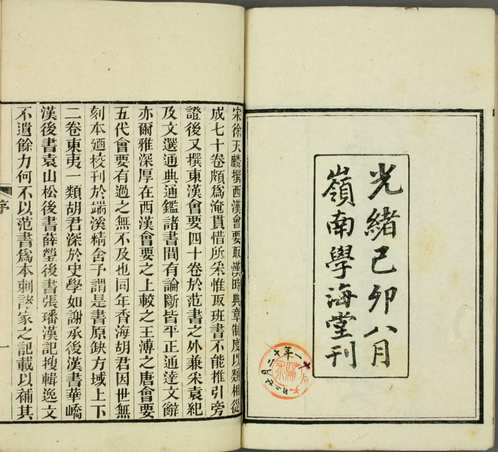 光緒己卯八月
嶺南學海堂刊
宋徐天麟撰西漢會要取漢時典章制度以類相從
成七十卷頗為淹貫惜所采惟取班書不能推引旁
證後又撰東漢會要四十卷於范書之外兼采袁紀
及文選通典通鑑諸書間有論斷皆平正通達文辭
亦爾雅深厚在西漢會要之上較之王溥之唐會要
五代會要有過之無不及也同年香海胡君因世無
刻本迺校刊於端溪精舍予謂是書原缺方域上下
二卷東夷一類胡君深於史學如謝承後漢書華嶠
漢後書袁山松後書薛瑩後書張璠漢記搜輯逸文
不遺餘力何不以范書為本刺諸家之記載以補其
序